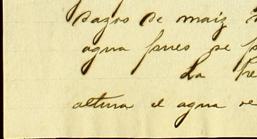 sagos de maiz
agua pues se
La
altura el agua